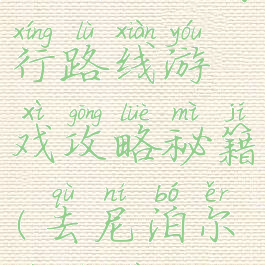 xíng lù xiàn yóu
行路线游
xì gōng lüè mì jí
戏攻略秘籍
qù ní bó ěr
(去尼泊尔